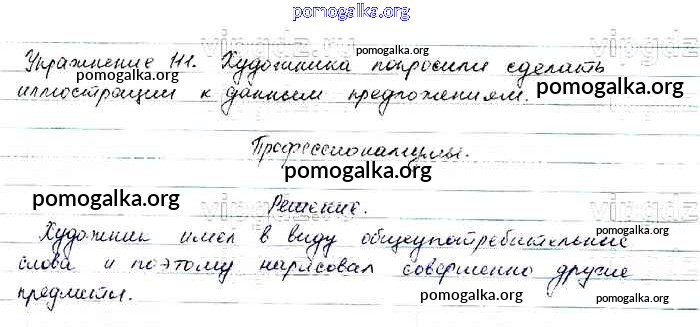 pomogalka.org
Упражнение 111. Художника попросили сделать
pomogalka.org
pomogalka.org
иллюстрации к данным предложениям.
pomogalka.org
Профессионализмы.
pomogalka.org
pomogalka.org
Решение.
pomogalka.org
Художник имел в виду общеупотребительные
слова и поэтому нарисовал совершенно другие
предметы.
pomogalka.org
pomogalka.org